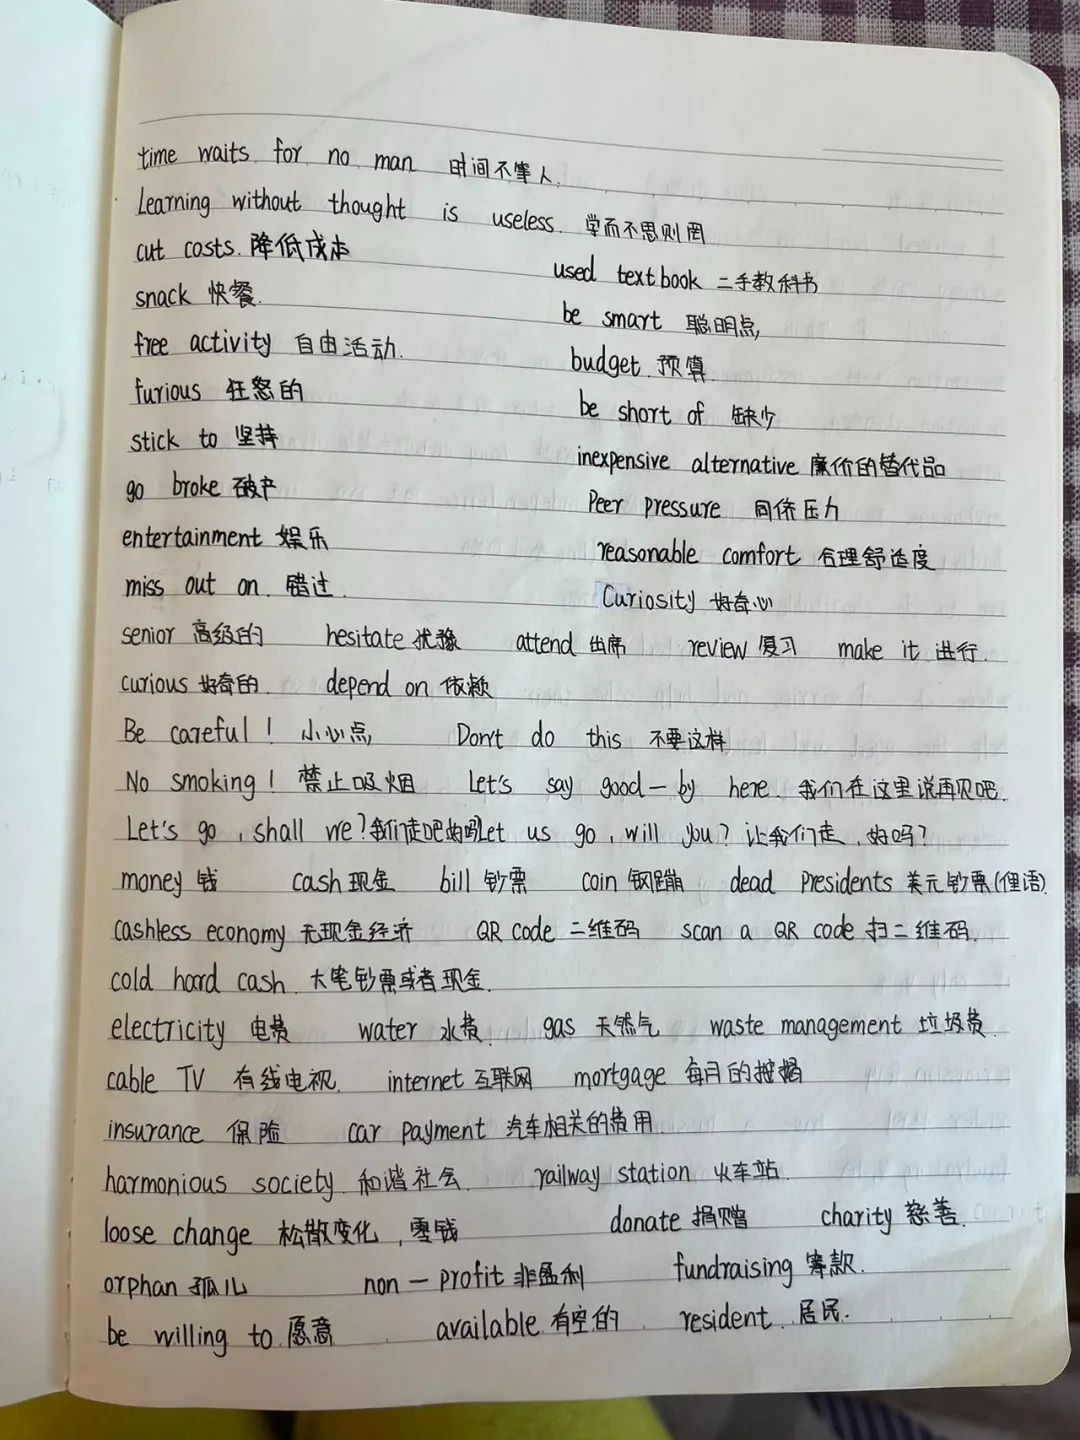 time waits for no man 时间不等人.
Learning without thought is useless. 学而不思则罔
cut costs. 降低成本
used textbook 二手教科书
snack 快餐.
be smart 聪明点
free activity 自由活动.
budget. 预算
furious 狂怒的
be short of 缺少
stick to 坚持
inexpensive alternative 廉价的替代品
go broke 破产
Peer pressure 同侪压力
entertainment 娱乐
reasonable comfort 合理舒适度
miss out on. 错过.
Curiosity 好奇心
senior 高级的 hesitate 犹豫 attend 出席 review 复习 make it 进行.
curious 好奇的. depend on 依赖
Be careful! 小心点 Don't do this 不要这样
No smoking! 禁止吸烟 Let's say good-by here. 我们在这里说再见吧.
Let's go, shall we? 我们走吧好吗 Let us go, will you? 让我们走,好吗?
money 钱 cash 现金 bill 钞票 coin 钢蹦 dead Presidents 美元钞票(俚语).
cashless economy 无现金经济 QR code 二维码 scan a QR code 扫二维码.
cold hard cash. 大笔钞票或者现金.
electricity 电费 water 水费. gas 天然气 waste management 垃圾费.
cable TV 有线电视. internet 互联网 mortgage 每月的按揭
insurance 保险 car payment 汽车相关的费用.
harmonious society. 和谐社会. railway station 火车站.
loose change 松散变化,零钱 donate 捐赠 charity 慈善.
orphan 孤儿 non-profit 非盈利 fundraising 筹款.
be willing to. 愿意 available. 有空的. resident. 居民.